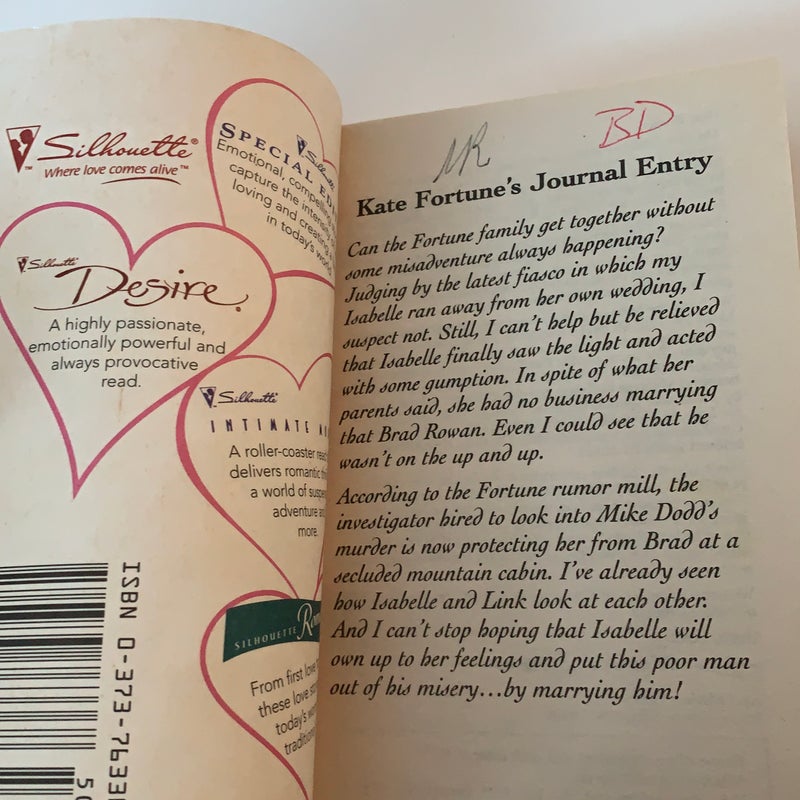 Silhouette®
Where love comes alive™
Silhouette
SPECIAL EDI
Emotional, compelling
capture the intensity
loving and creating
in today's world
Silhouette
Desire.
A highly passionate,
emotionally powerful and
always provocative
read.
Silhouette
INTIMATE
A roller-coaster read
delivers romantic
a world of
adventure
more.
SILHOUETTE
From first love
these love
today's
ISBN 0-373-7633
BD
Kate Fortune's Journal Entry
Can the Fortune family get together without
some misadventure always happening?
Judging by the latest fiasco in which my
Isabelle ran away from her own wedding, I
suspect not. Still, I can't help but be relieved
that Isabelle finally saw the light and acted
with some gumption. In spite of what her
parents said, she had no business marrying
that Brad Rowan. Even I could see that he
wasn't on the up and up.
According to the Fortune rumor mill, the
investigator hired to look into Mike Dodd's
murder is now protecting her from Brad at a
secluded mountain cabin. I've already seen
how Isabelle and Link look at each other.
And I can't stop hoping that Isabelle will
own up to her feelings and put this poor man
out of his misery...by marrying him!